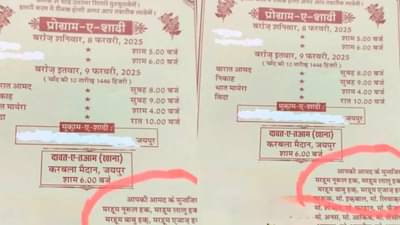 प्रोग्राम-ए-शादी
बरोज़ शनिवार, 8 फरवरी, 2025
शाम 5.00 बजे
शाम 6.00 बजे
बरोज़ इतवार, 9 फरवरी, 2025
( चाँद की 12 तारीख 1446 हिजरी )
बारात आमद
सुबह 8.00 बजे
निकाह
सुबह 9.00 बजे
भात मायेरा
शाम 4.00 बजे
विदा
रात 10.00 बजे
मुकाम-ए-शादी :
जयपुर
दावत-ए-तआम (खाना)
करबला मैदान, जयपुर
शाम 6.00 बजे
आपकी आमद के मुन्तजिर
मरहूम नूरूल हक, मरहूम लालू हक
मरहूम बाबु हक, मरहूम एजाज ह
प्रोग्राम-ए-शादी
बरोज़ शनिवार, 8 फरवरी, 2025
शाम 5.00 बजे
शाम 6.00 बजे
बरोज़ इतवार, 9 फरवरी, 2025
( चाँद की 12 तारीख 1446 हिजरी )
आमद
सुबह 8.00 बजे
निकाह
सुबह 9.00 बजे
भात मायेरा
शाम 4.00 बजे
विदा
रात 10.00 बजे
मुकाम-ए-शादी :
जयपुर
दावत-ए-तआम (खाना)
करबला मैदान, जयपुर
शाम 6.00 बजे
आपकी आमद के मुन्तजिर
मरहूम नूरूल हक, मरहूम लालू ह
मरहूम बाबु हक, मरहूम एजाज ह
मो. इकबाल, मो. लियाक